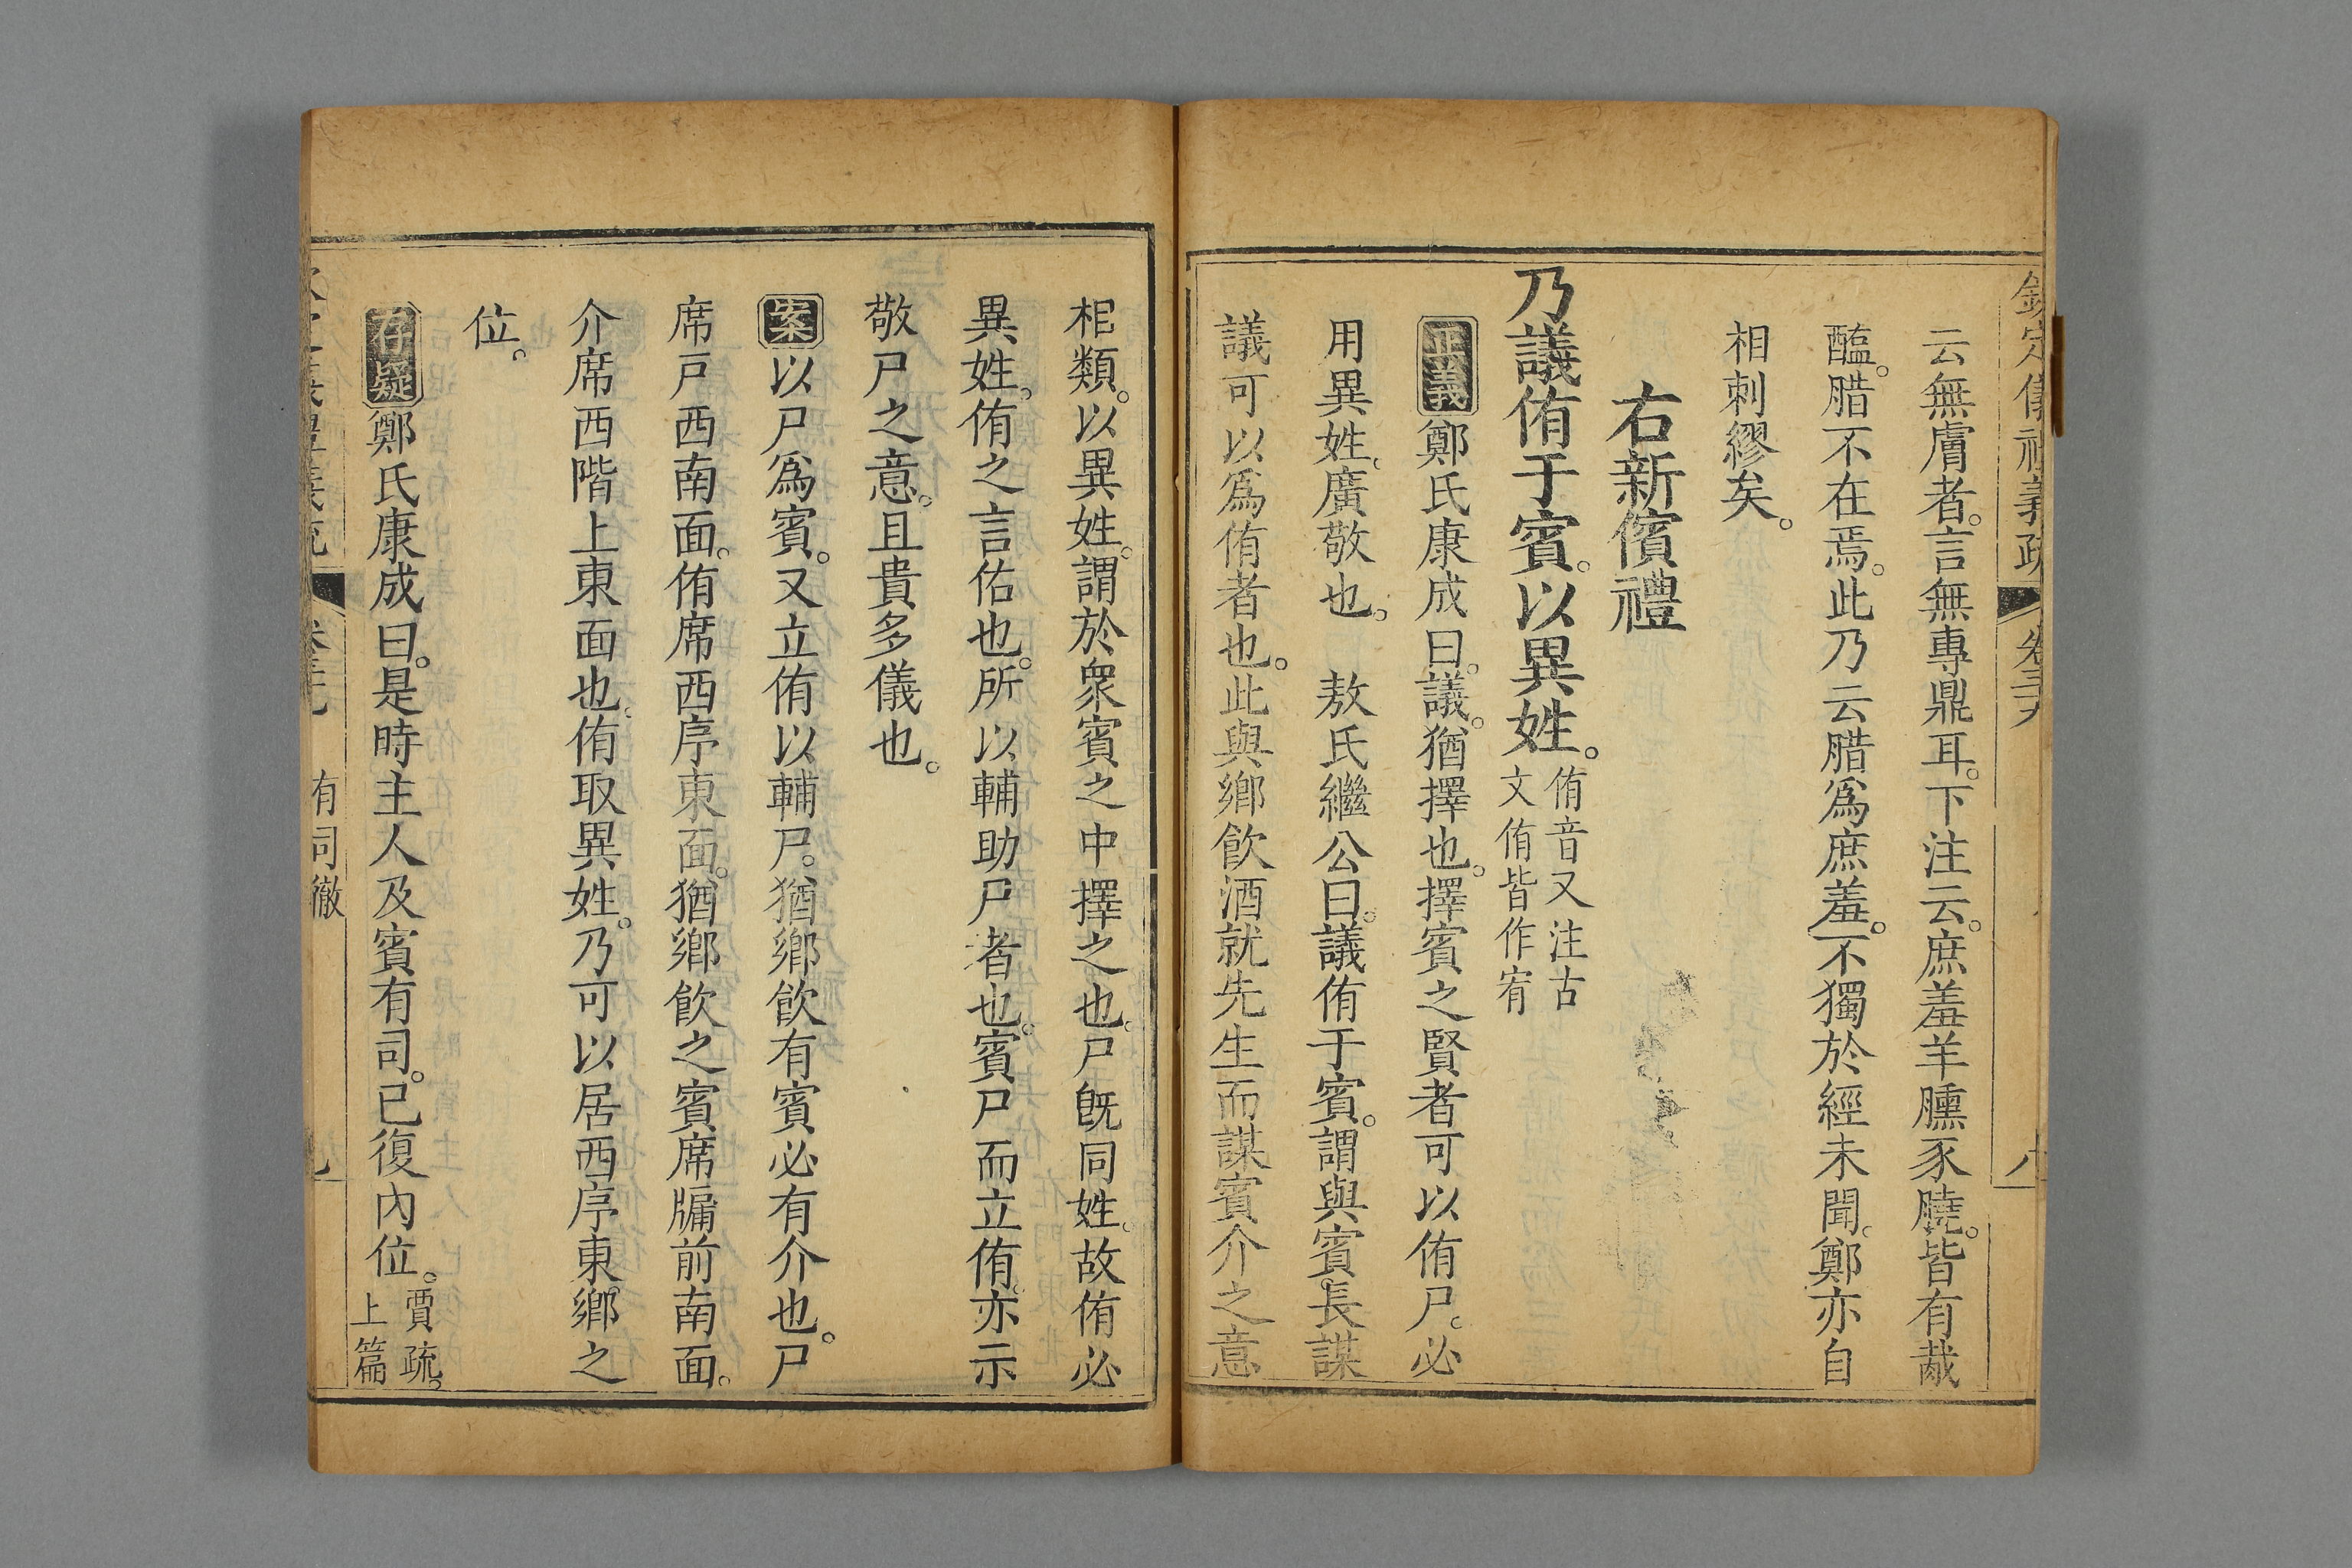 欽定儀禮義疏 卷三十九 八
云無膚者。言無專鼎耳。下注云。庶羞羊臐豕膮。皆有胾
醢。腊不在焉。此乃云腊爲庶羞。不獨於經未聞。鄭亦自
相刺繆矣。
右新儐禮
乃議侑于賓。以異姓。侑音又注古
文侑皆作宥
正義鄭氏康成曰。議。猶擇也。擇賓之賢者可以侑尸。必
用異姓。廣敬也。 敖氏繼公曰。議侑于賓。謂與賓長謀
議可以爲侑者也。此與鄉飲酒就先生而謀賓介之意
相類。以異姓。謂於衆賓之中擇之也。尸旣同姓。故侑必
異姓。侑之言佑也。所以輔助尸者也。賓尸而立侑。亦示
敬尸之意。且貴多儀也。
案以尸爲賓。又立侑以輔尸。猶鄉飲有賓必有介也。尸
席戸西南面。侑席西序東面。猶鄉飲之賓席牖前南面。
介席西階上東面也。侑取異姓。乃可以居西序東鄉之
位。
存疑鄭氏康成曰。是時主人及賓有司。已復內位。賈疏。
上篇
有司徹